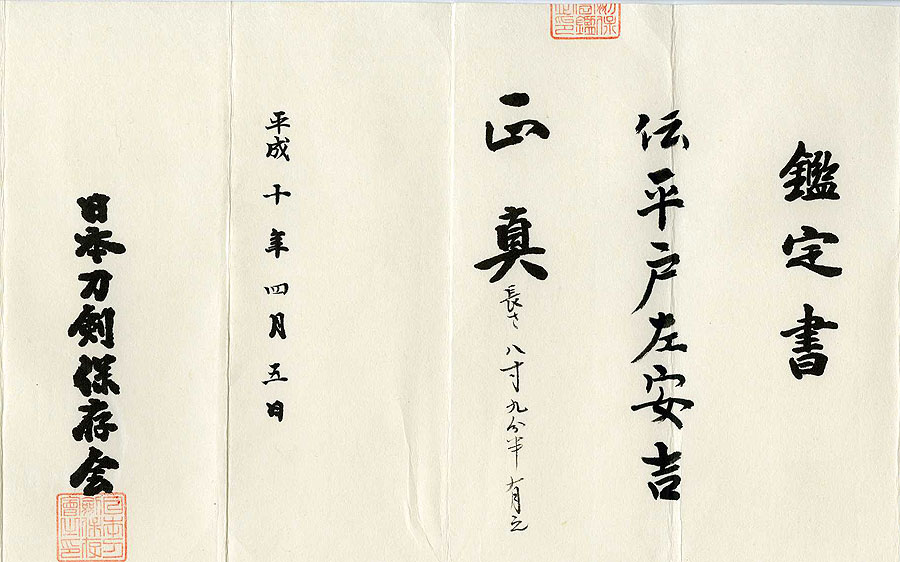 鑑定書
伝平戸左安吉
正真
長さ八寸九分半有之
平成十年四月五日
日本刀剣保存会